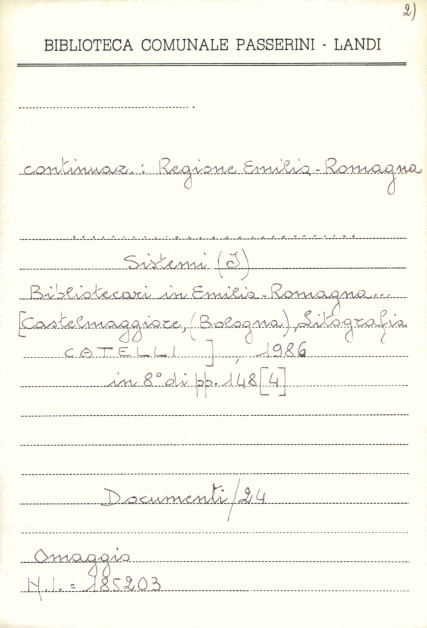 2)
BIBLIOTECA COMUNALE PASSERINI - LANDI
continuaz. : Regione Emilia-Romagna
Sistemi (I)
Bibliotecari in Emilia-Romagna...
[Castelmaggiore, (Bologna), Litografia
CATELLI ] , 1986
in 8° di pp. 148 [4]
Documenti/24
Omaggio
N.I. = 185203